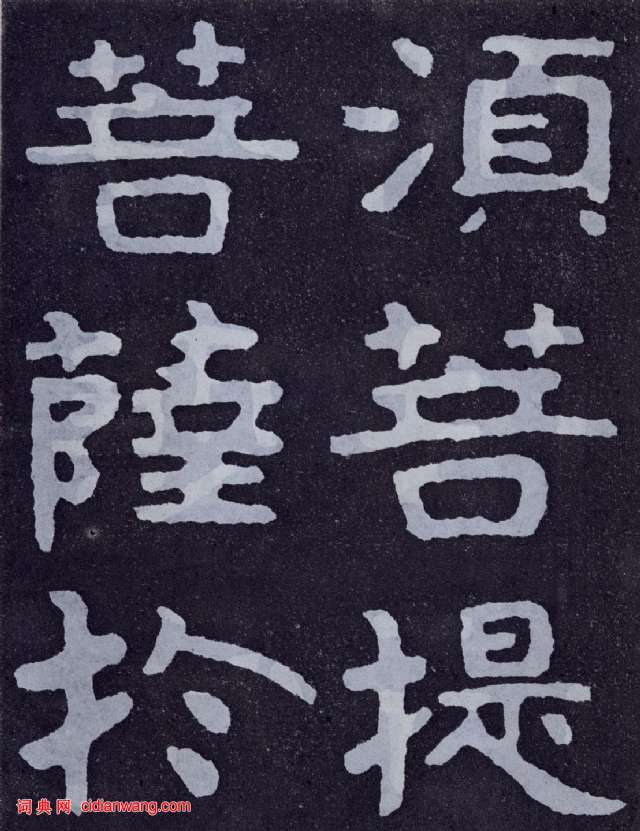 須菩提
菩薩於
词典网 cidianwang.com